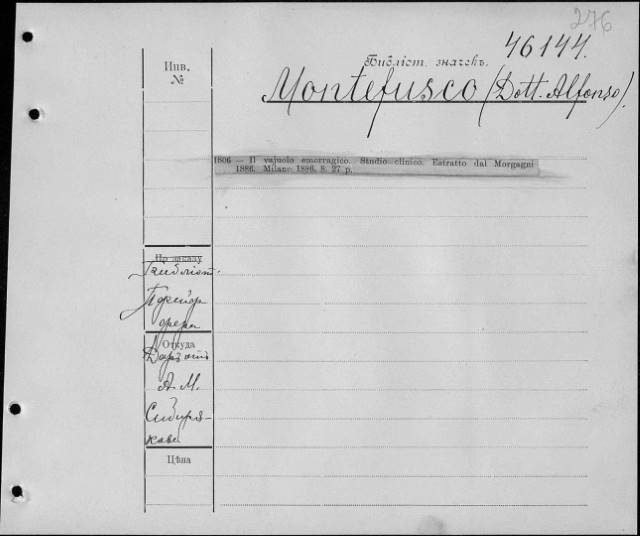 276
46144.
Инв.
№
Библіот. значекъ.
Montefusco (Dott. Alfonso).
1806 — Il vajuolo emorragico. Studio clinico. Estratto dal Morgagni
1886. Milano 1886. 8. 27 p.
Пр заказу
Библіот.
Откуда
Даръ отъ
А. М.
Сибиря-
кова
Цѣна